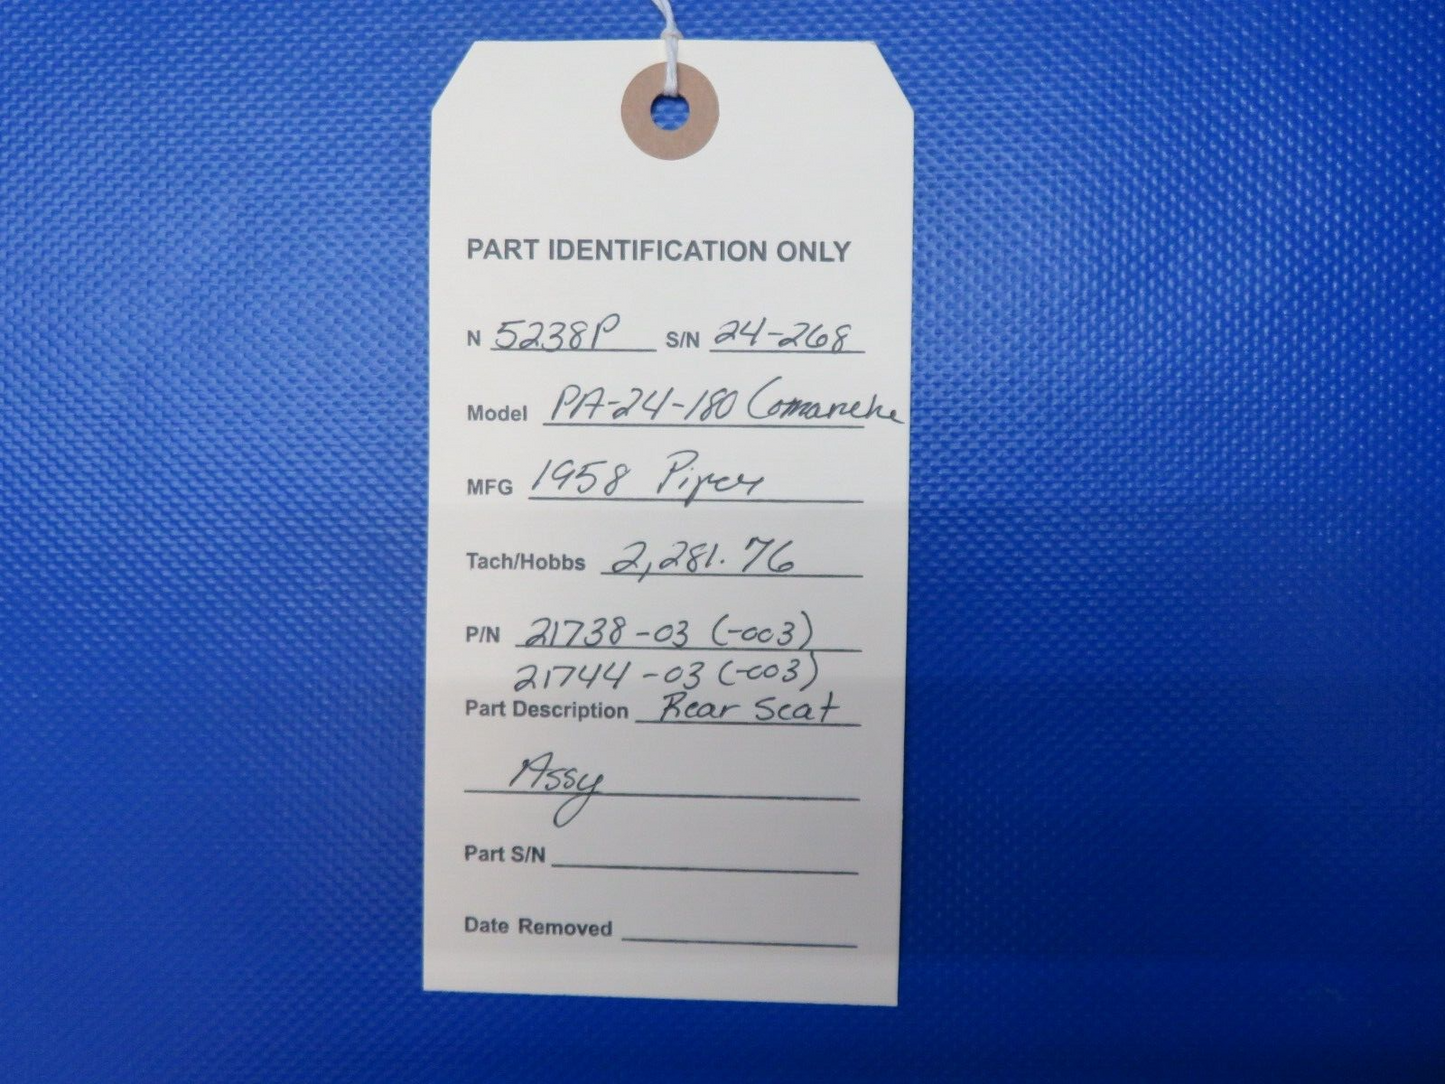 PART IDENTIFICATION ONLY
N 5238P S/N 24-268
Model PA-24-180 Comanche
MFG 1958 Piper
Tach/Hobbs 2,281.76
P/N 21738-03 (-003)
21744-03 (-003)
Part Description Rear Seat
Assy
Part S/N
Date Removed